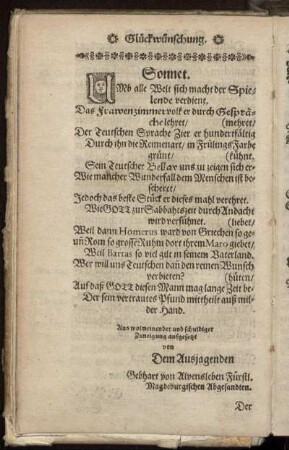 Glückwünschung.
Sonnet.
UMb alle Welt sich macht der Spie-
lende verdient,
Das Frawenzimmervolk er durch Gesprä-
che lehret/ (mehret/
Der Teutschen Sprache Zier er hundertfältig
Durch ihn die Reimenart/ in Frülings Farbe
grünt/ (kühnt.
Sein Teutscher uns zu zeigen sich er-
Wie mancher Wanderfall dem Menschen ist be-
scheret/
Jedoch das beste Stück er dieses mahl verehret.
Wie GOTT zur Sabbahtszeit durch Andacht
wird versühnet. (liebet/
Weil dann Homerus ward von Griechen so ge-
uñ Rom so grosse Ruhm dort ihrem Maro giebet/
Weil Bartas so viel gilt in seinem Vaterland.
Wer wil uns Teutschen dañ den reinen Wunsch
verbieten? (hüten/
Auf daß GOTT diesen Mann mag lange Zeit be-
Der sein vertrautes Pfund mittheilt auß mil-
der Hand.
Aus wolmeinender und schuldiger
Zuneigung aufgesetzt
von
Dem Ausjagenden
Gebhart von Alvensleben Fürstl.
Magdeburgischen Abgesandten.
Der